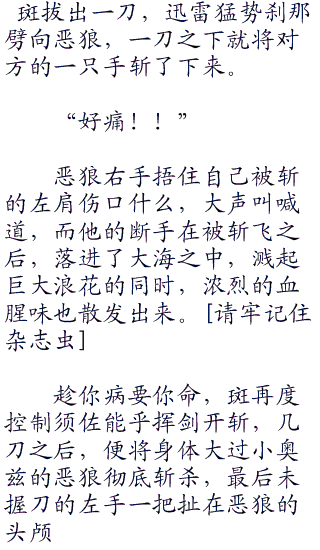 斑拔出一刀，迅雷猛势刹那
劈向恶狼，一刀之下就将对
方的一只手斩了下来。
“好痛！！”
恶狼右手捂住自己被斩
的左肩伤口什么，大声叫喊
道，而他的断手在被斩飞之
后，落进了大海之中，溅起
巨大浪花的同时，浓烈的血
腥味也散发出来。[请牢记住
杂志虫]
趁你病要你命，斑再度
控制须佐能乎挥剑开斩，几
刀之后，便将身体大过小奥
兹的恶狼彻底斩杀，最后未
握刀的左手一把扯在恶狼的
头颅